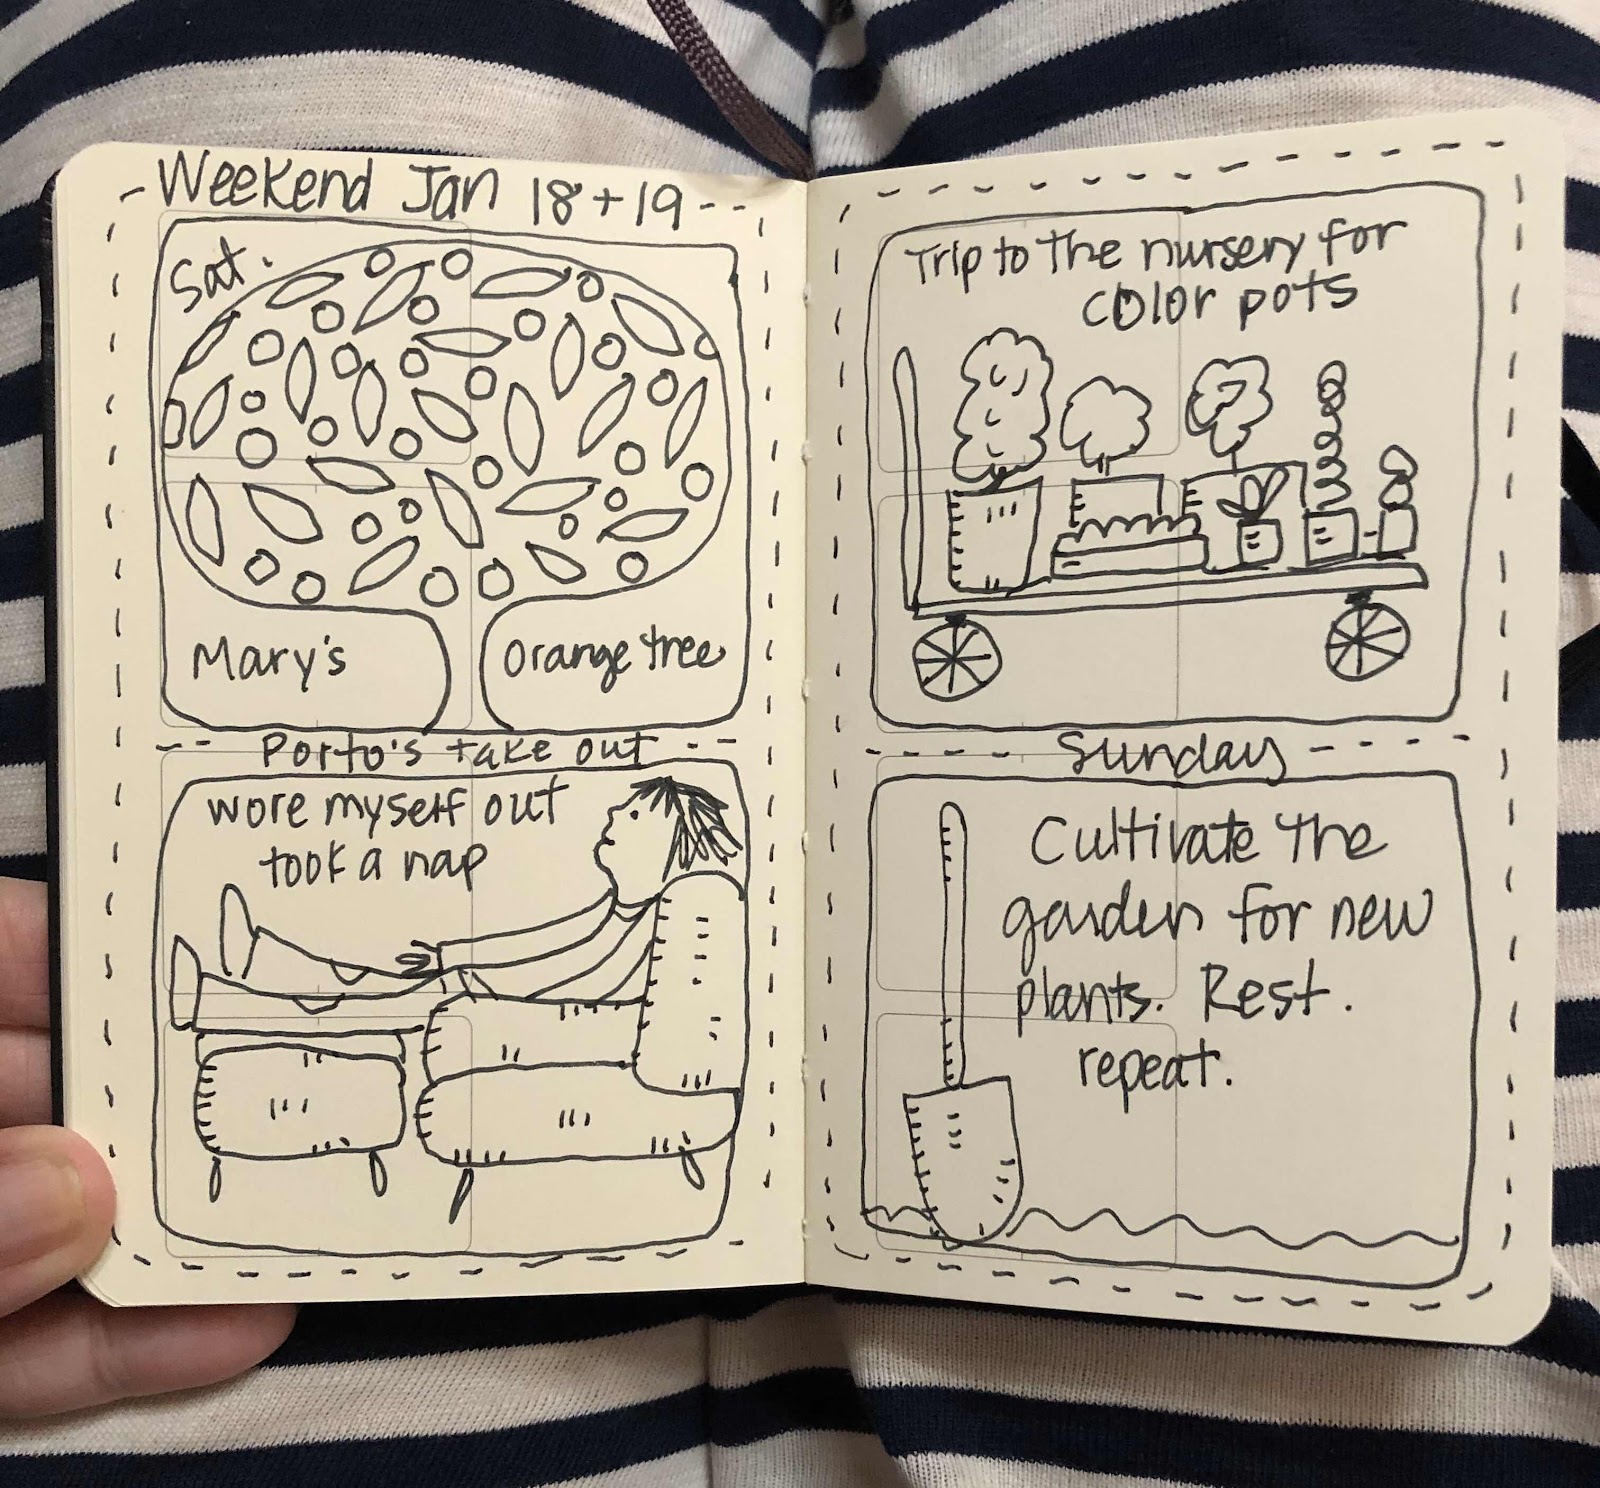 Weekend Jan 18+19
Sat.
Mary's orange tree
Porto's take out
wore myself out
took a nap
Trip to the nursery for
color pots
Sunday
Cultivate the
garden for new
plants. Rest.
repeat.